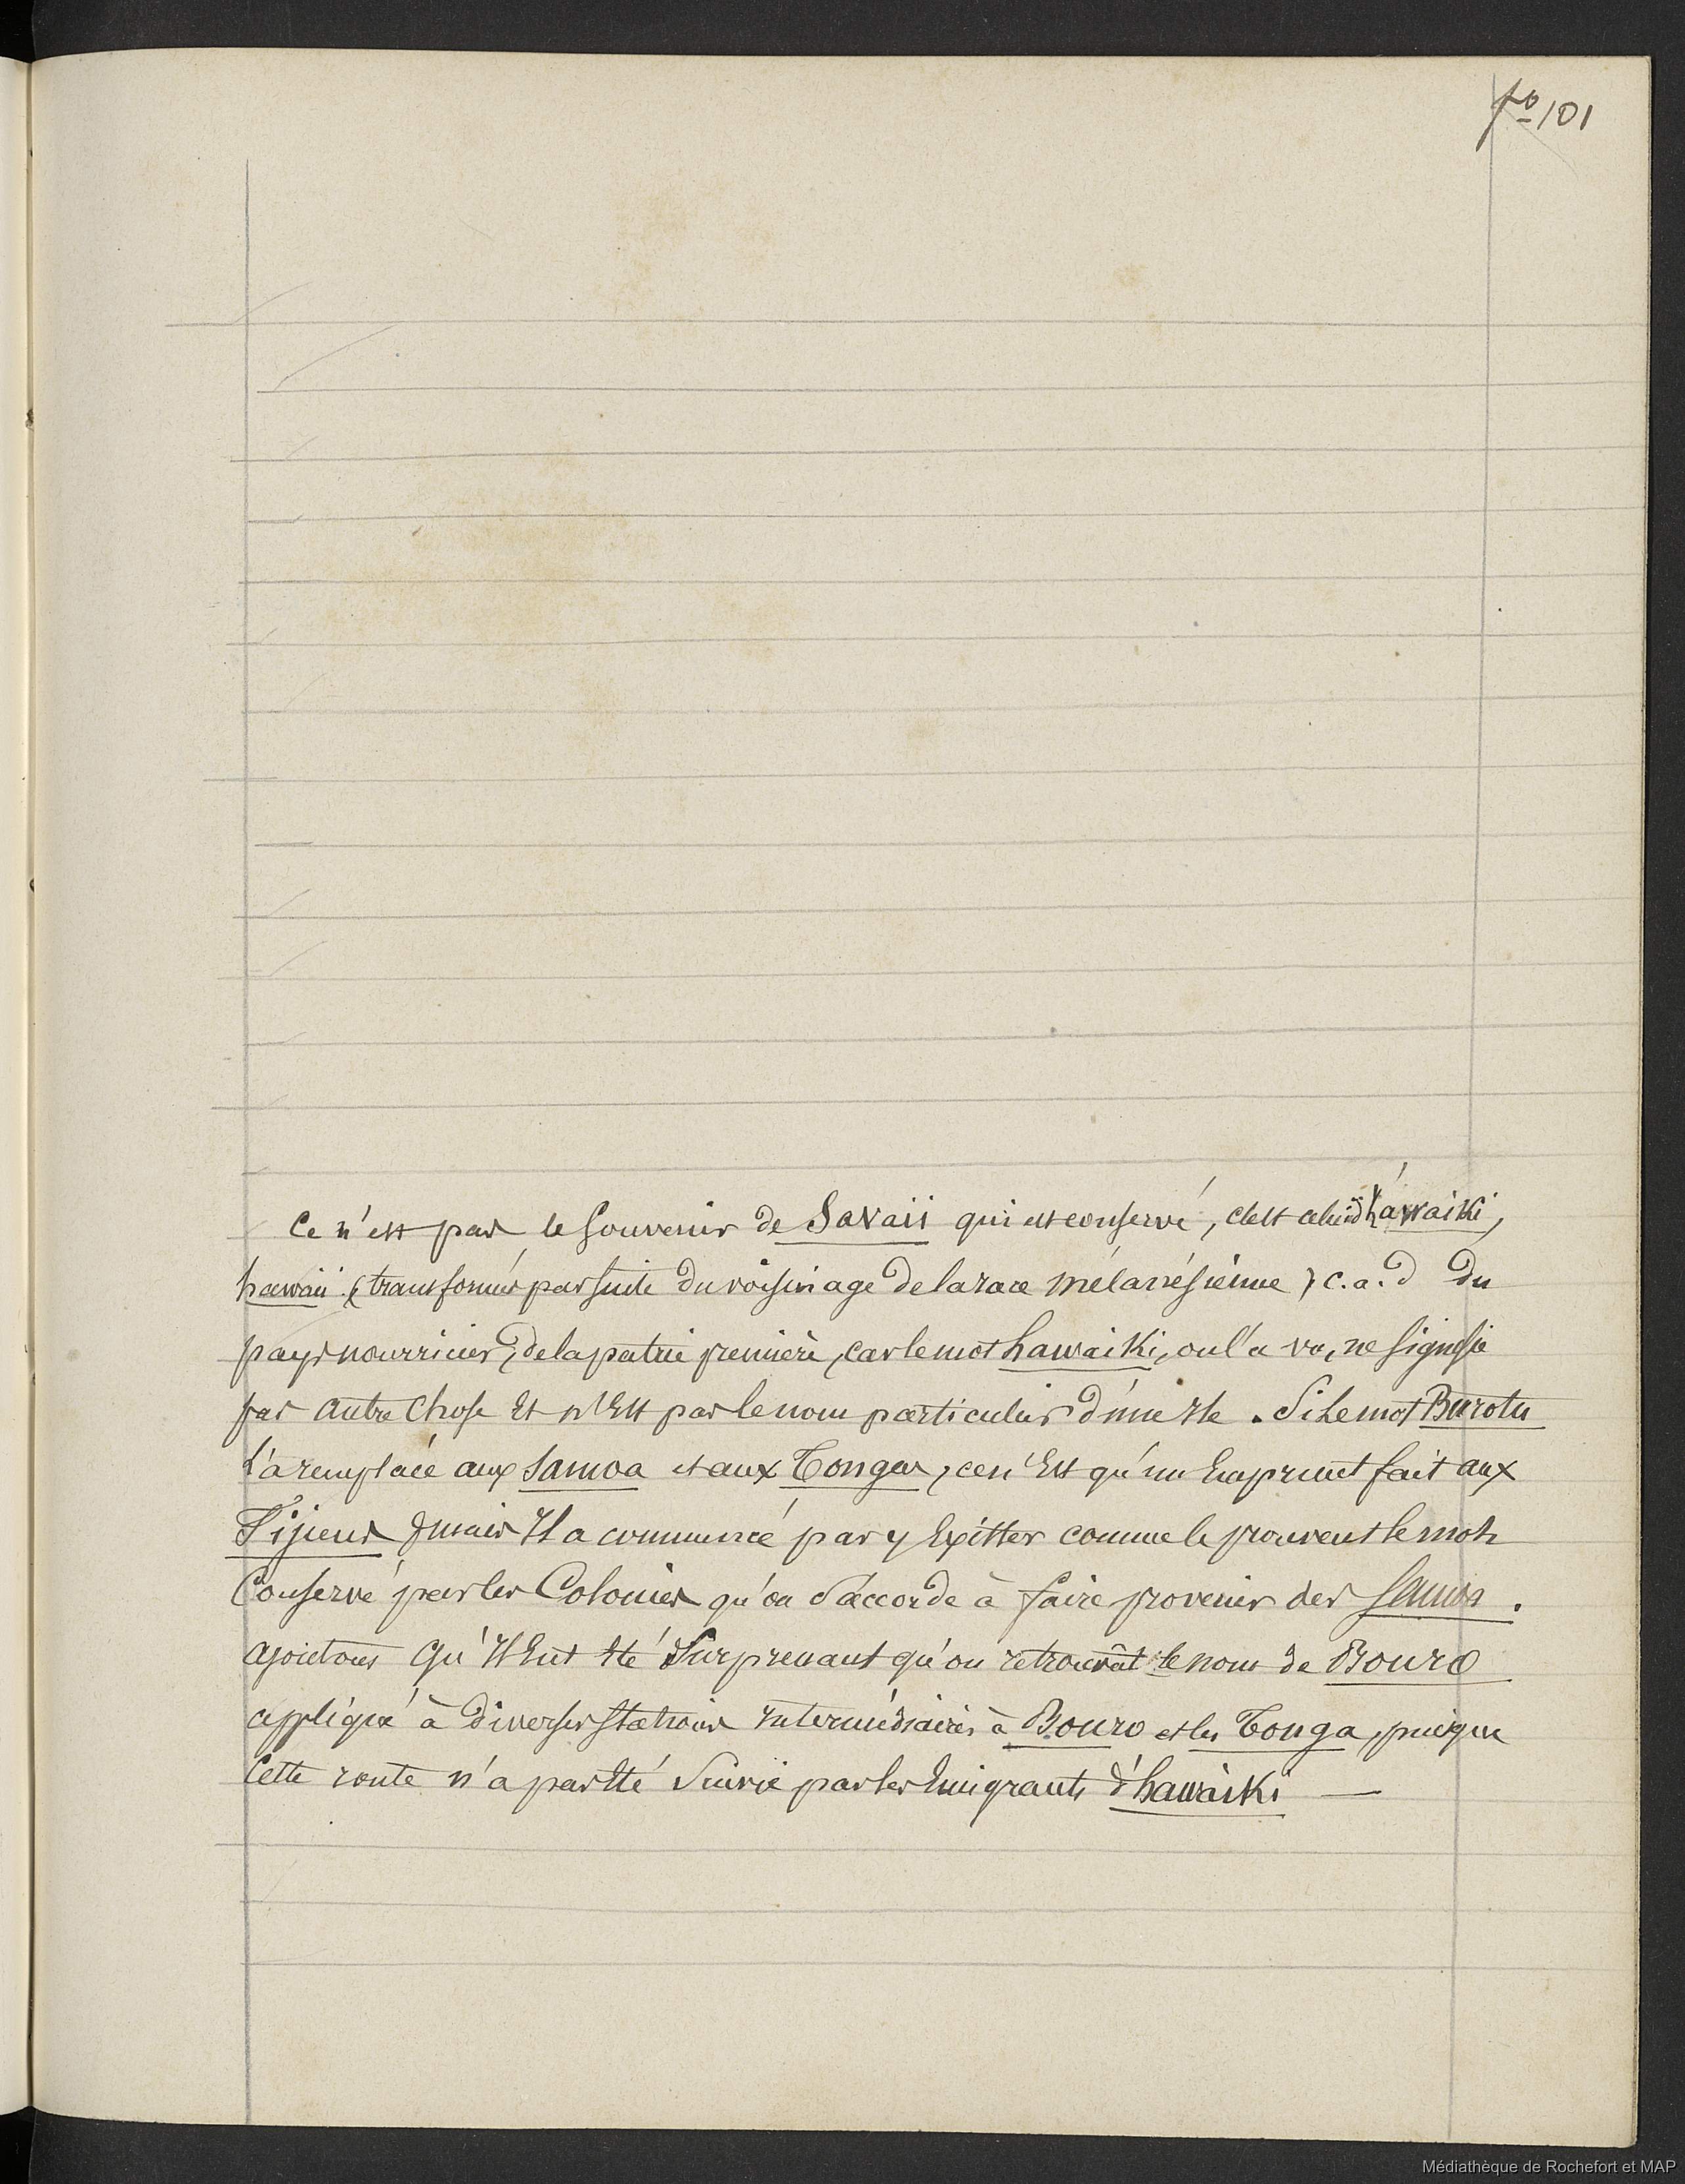 fo 101
Ce n'est pas le souvenir de Savaii qui est conservé, c'est celui d'hawaiki,
hawaii (transformés par suite du voisinage de la race mélanésienne) c.a.d du
pays nourricier, de la patrie première, car le mot hawaiki, on l'a vu, ne signifie
pas autre chose et n'est pas le nom particulier d'une île. Si le mot Burotu
l'a remplacé aux Samoa et aux Tongas, ce n'est qu'un emprunt fait aux
Fijiens mais Il a commencé par y exister comme le prouvent le mots
Conservé par les Colonies qu'on s'accorde à faire provenir des Samoa.
ajoutons qu'Il eut été surprenant qu'on retrouvât le nom de Bouro
appliqué à diverses stations intermédiaires à Bouro et les Tonga, puisque
Cette route n'a pas été suivie par les Emigrants d'hawaiki —
Médiathèque de Rochefort et MAP